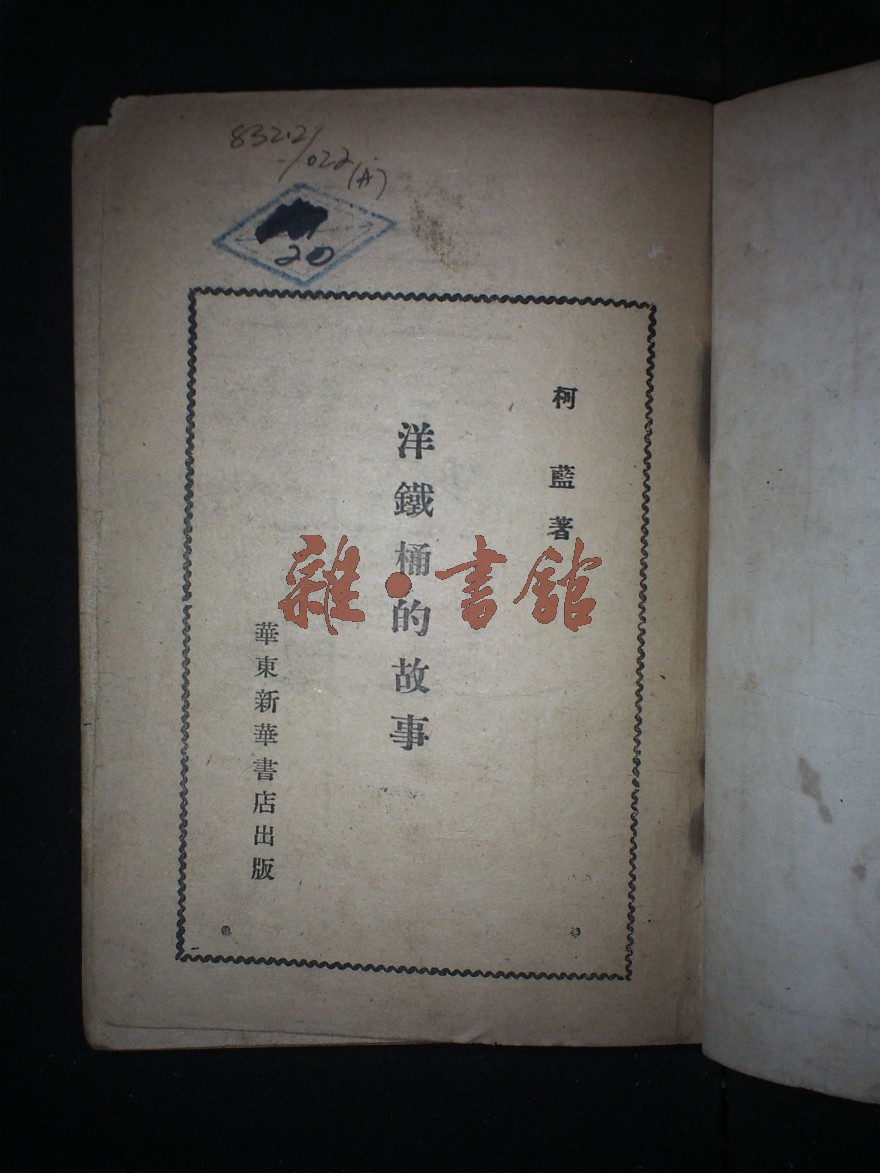 832.2/022(A)
20
柯藍著
洋鐵桶的故事
華東新華書店出版
雜·書館